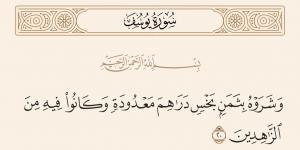 سُورَةُ يُوسُفَ
بِسْمِ ٱللَّهِ ٱلرَّحْمَٰنِ ٱلرَّحِيمِ
وَشَرَوْهُ بِثَمَنٍۭ بَخْسٍ دَرَٰهِمَ مَعْدُودَةٍ وَكَانُوا۟ فِيهِ مِنَ
ٱلزَّٰهِدِينَ ٢٠